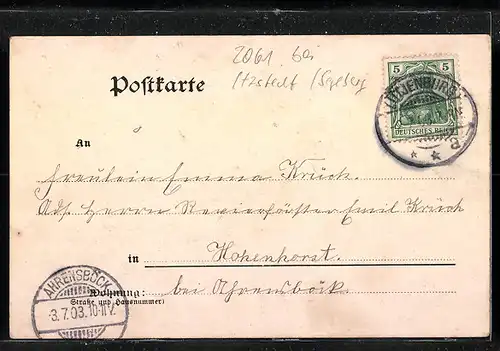 2061 bei
Itzstedt / Segeberg
Postkarte
5 5
DEUTSCHES REICH
LÜTJENBURG
An
Fräulein Emma Krück.
Adr. Herrn Revierförster Emil Krück
in Hohenhorst.
Wohnung: bei Ahrensböck.
Straße und Hausnummer
AHRENSBÖCK
3.7.03. 10-11V.